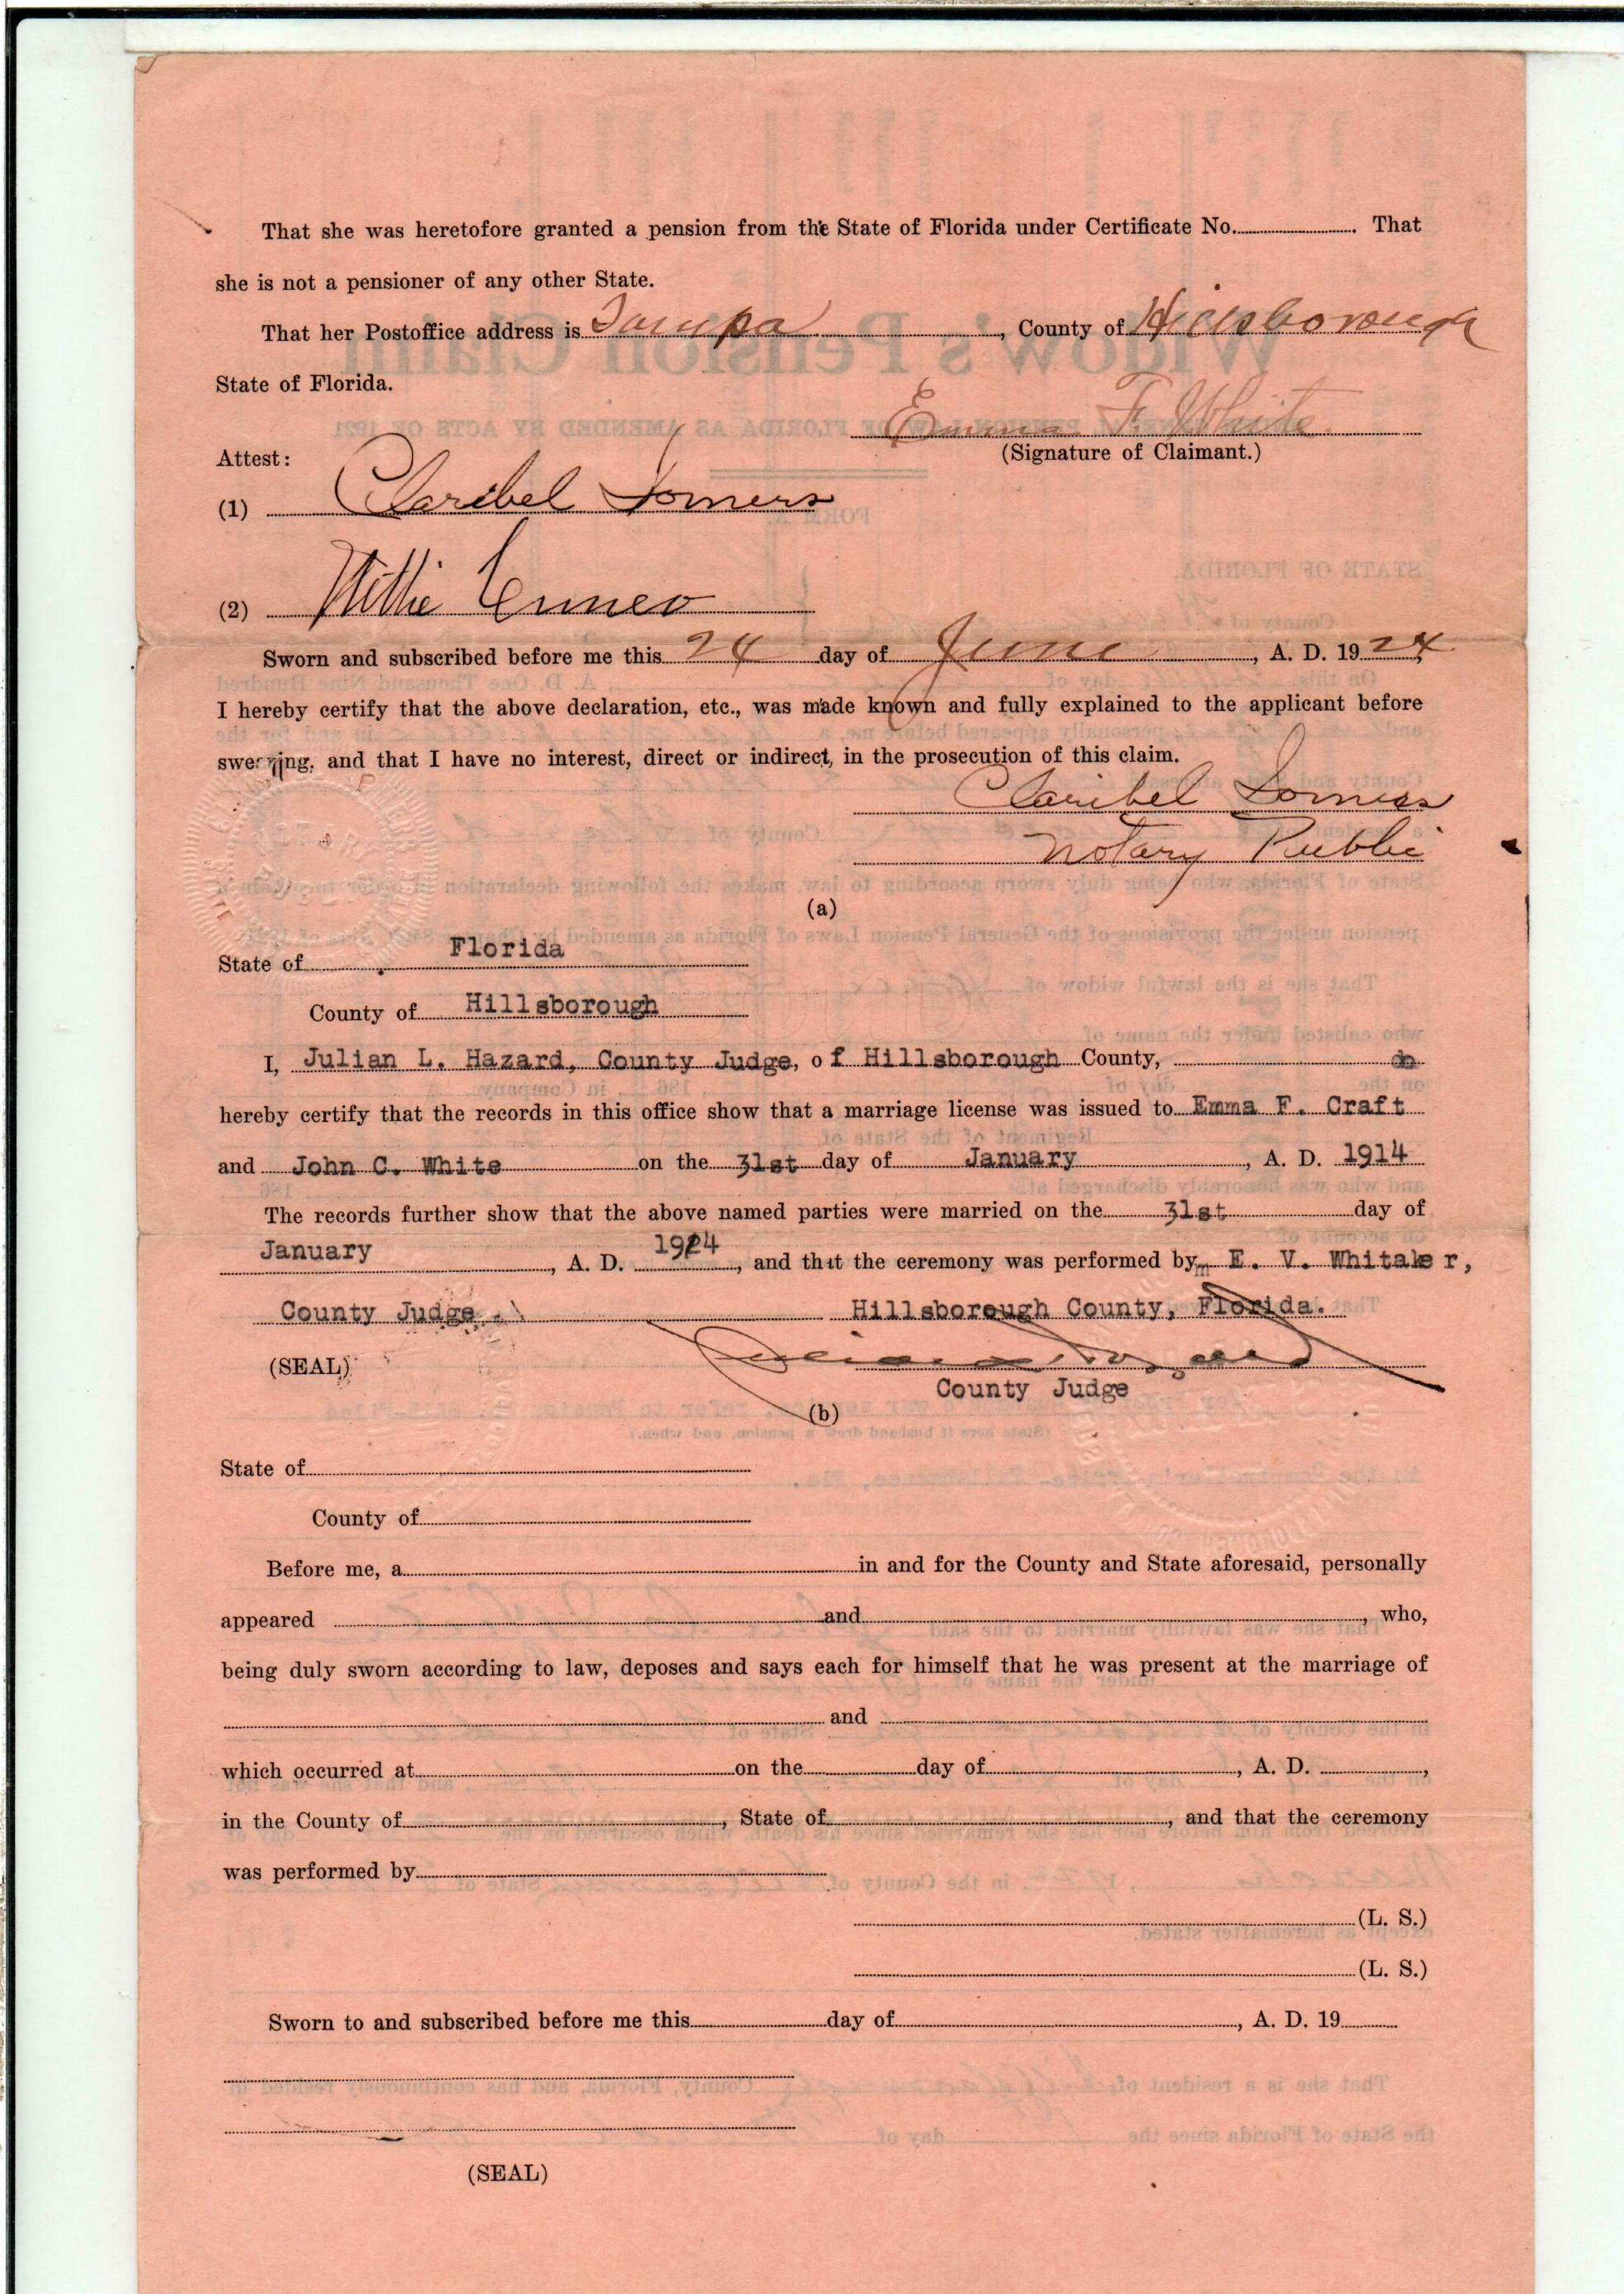 That she was heretofore granted a pension from the State of Florida under Certificate No............ That
she is not a pensioner of any other State.
That her Postoffice address is Tampa, County of Hillsborough
State of Florida.
Emma F. White
(Signature of Claimant.)
Attest:
(1) Claribel Somers
(2) Willie Cuneo
Sworn and subscribed before me this 24 day of June, A. D. 1924
I hereby certify that the above declaration, etc., was made known and fully explained to the applicant before
swearing, and that I have no interest, direct or indirect, in the prosecution of this claim.
Claribel Somers
Notary Public
(a)
State of Florida
County of Hillsborough
I, Julian L. Hazard, County Judge, of Hillsborough County, do
hereby certify that the records in this office show that a marriage license was issued to Emma F. Craft
and John C. White on the 31st day of January, A. D. 1914
The records further show that the above named parties were married on the 31st day of
January, A. D. 1914, and that the ceremony was performed by E. V. Whitaker,
County Judge Hillsborough County, Florida.
(SEAL)
County Judge
(b)
State of
County of
Before me, a in and for the County and State aforesaid, personally
appeared and , who,
being duly sworn according to law, deposes and says each for himself that he was present at the marriage of
and
which occurred at on the day of , A. D. ,
in the County of , State of , and that the ceremony
was performed by
(L. S.)
(L. S.)
Sworn to and subscribed before me this day of , A. D. 19
(SEAL)